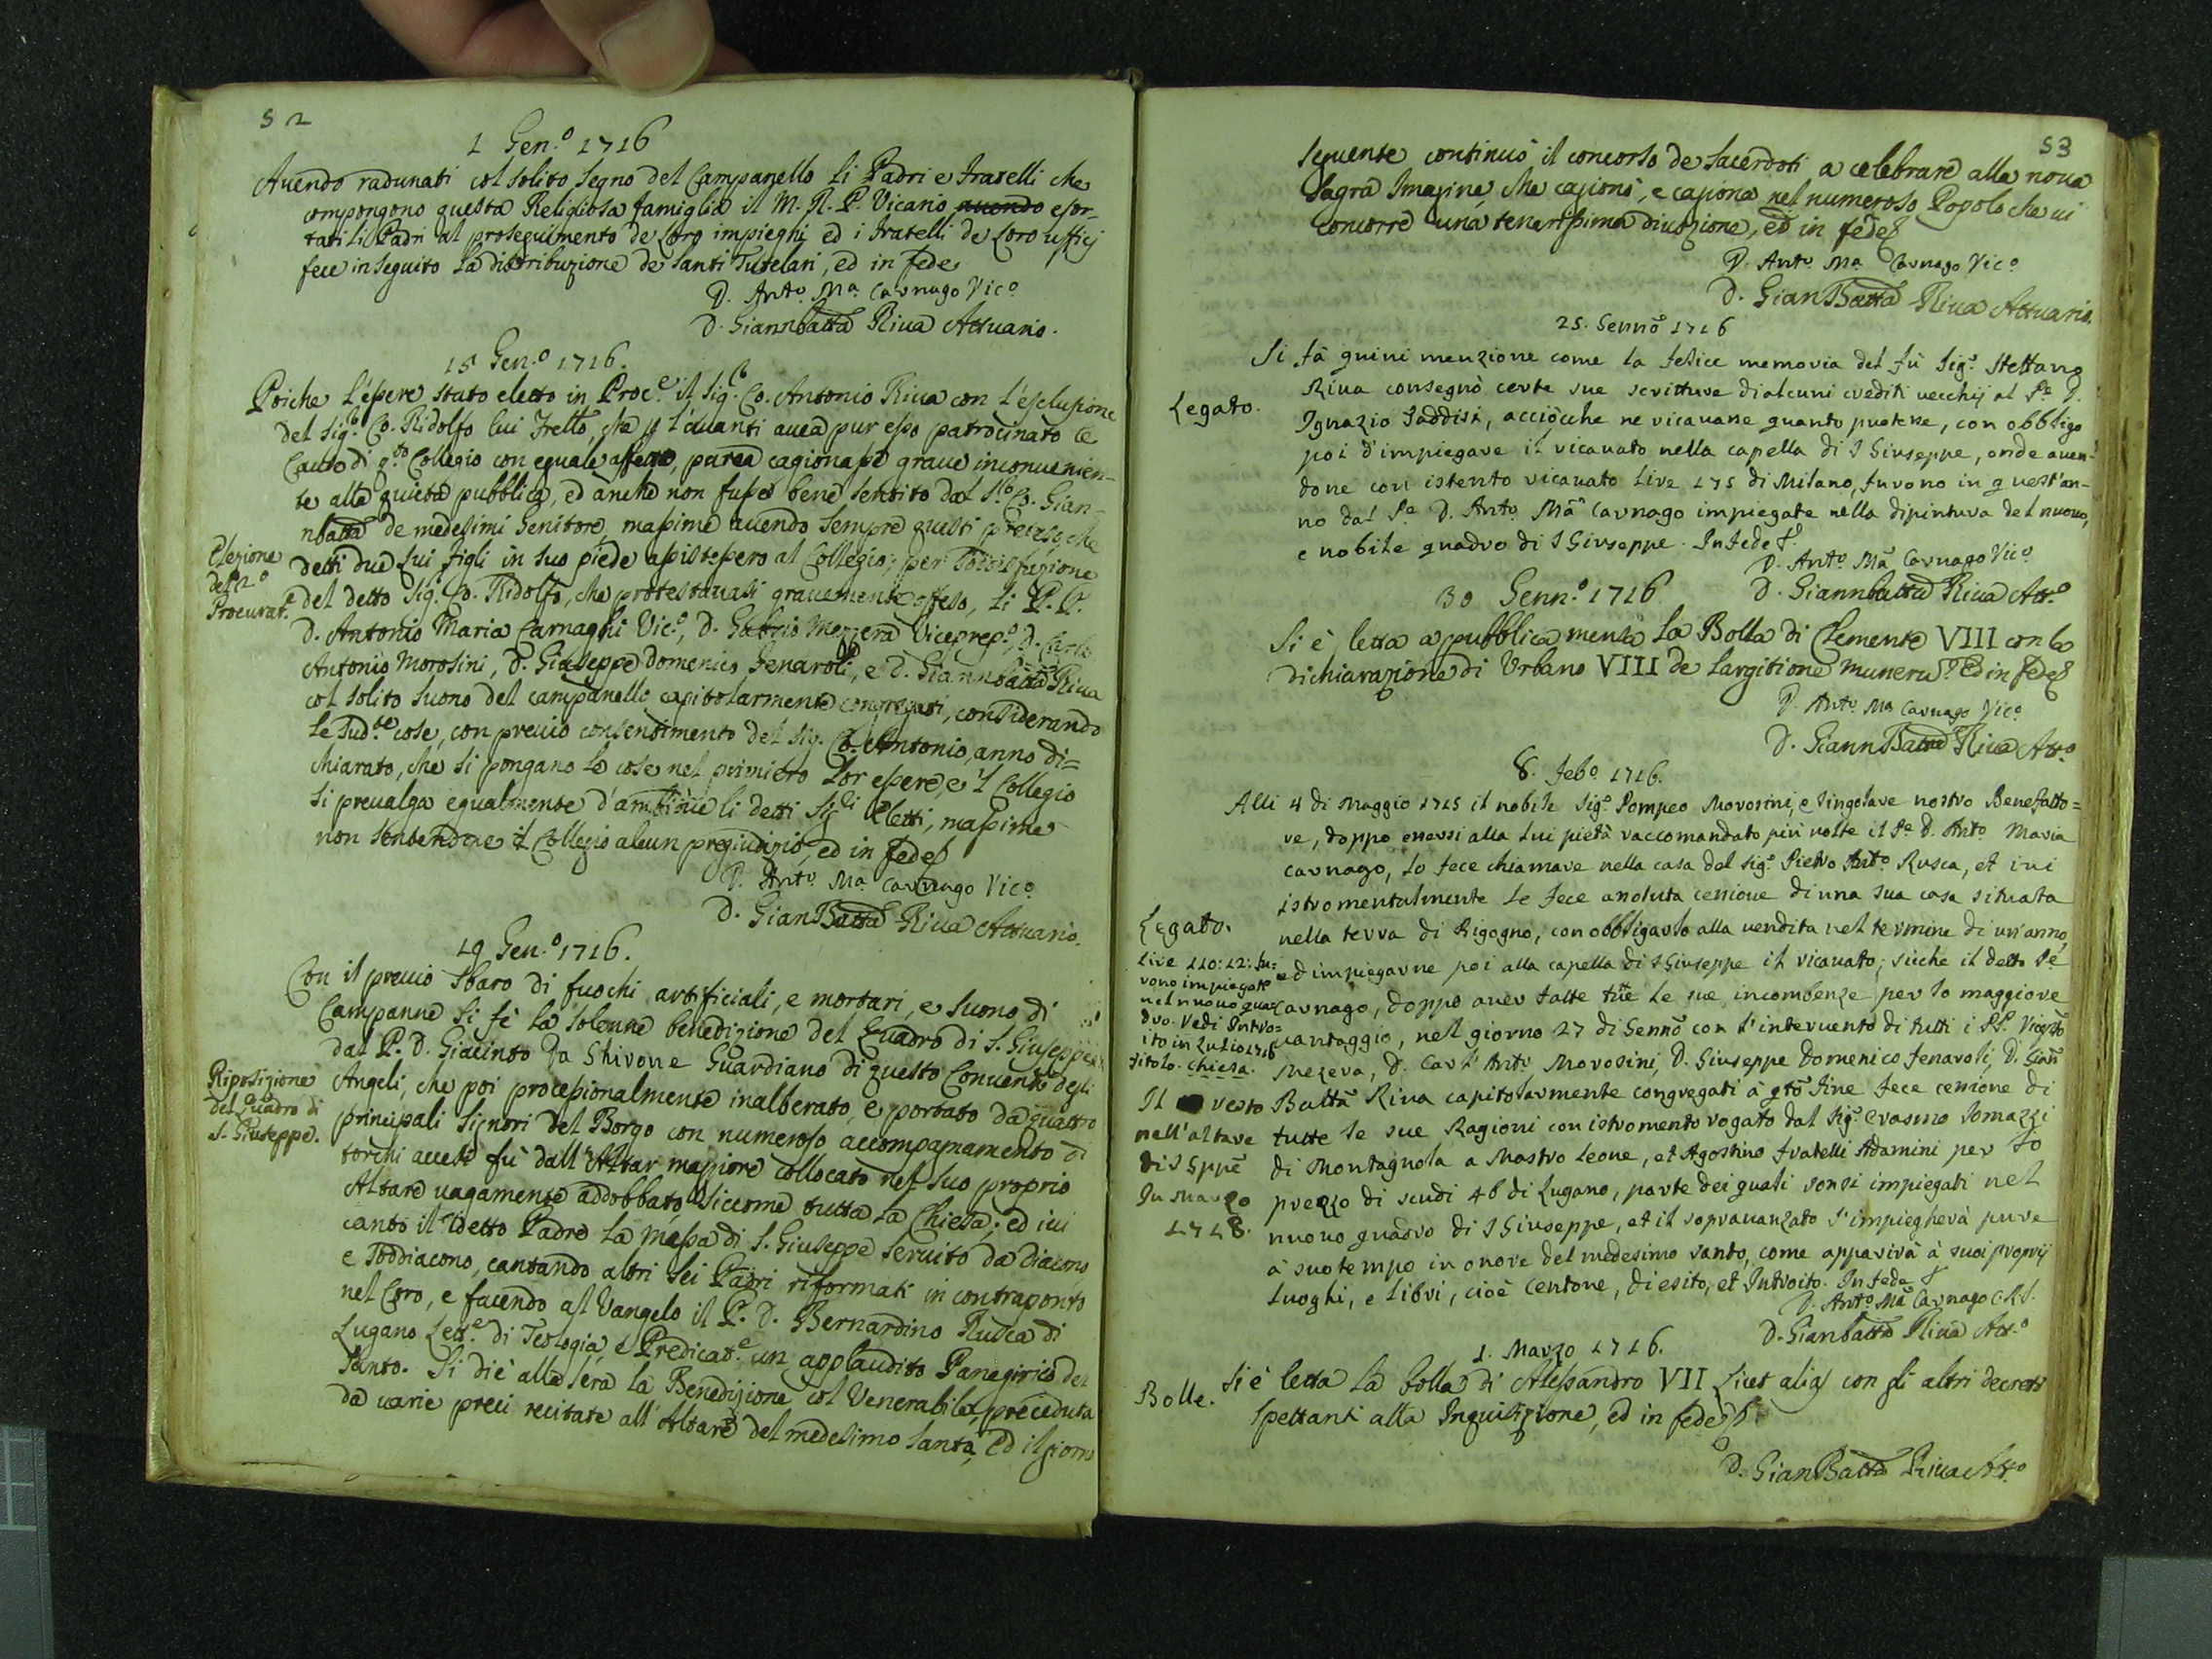 52
1 Gen.º 1716
Auendo radunati col solito segno del Campanello li Padri e fratelli che
compongono questa Religiosa famiglia il M. R. P. Vicario auendo esor-
tati li Padri al proseguimento de loro impieghi ed i fratelli de loro ufficj
fece in seguito la distribuzione de santi Tutelari, ed in fede
D. Antº. Mª. Carnago Vicº
D. Giannbatta Riua Attuario.
15 Gen.º 1716.
Poiche l'essere stato eletto in Proc.e il Sig. Co. Antonio Riua con l'esclusione
del Sig. Co. Ridolfo lui frello, che p l'auanti auea pur esso patrocinato le
Cause di q.to Collegio con eguale affetto, parea cagionasse graue inconuenien-
te alla quieta pubblica, ed anche non fusse bene sentito dal S. Co. Gian-
nbatta de medesimi Genitore, massime auendo sempre questi preteso, che
detti due sui figli in suo piede assistessero al Collegio; per
del detto Sig. Co. Ridolfo, che protestauasi grauemente offeso, li P. P.
Elezione
del 2º
Procurat.e
D. Antonio Maria Carnaghi Vic.º, D. Gabrio Mezzera Viceprep.º, D. Carlo
Antonio Morosini, D. Giuseppe Domenico Fenaroli, e D. Giannbatta Riua
col solito suono del campanello capitolarmente congregati, considerando
le sud.te cose, con preuio consentimento del Sig. Co. Antonio, anno di=
chiarato, che si pongano le cose nel primiero lor essere, e 'l Collegio
si preualga egualmente d'ambidue li detti Sig.di Eletti, massime
non sentendone il Collegio alcun pregiudizio, ed in fede
D. Antº. Mª. Carnago Vicº
D. GianBatta Riua Attuario.
19 Gen.º 1716.
Con il preuio sbaro di fuochi artificiali, e mortari, e suono di
Campanne si fè la solenne benedizione del Quadro di S. Giuseppe
dal P. D. Giacinto da Shivone Guardiano di questo Conuento degli
Riposizione
del Quadro di
S. Giuseppe.
Angeli, che poi processionalmente inalberato, e portato da quattro
principali Signori del Borgo con numeroso accompagnamento di
torchi accesi fù dall'Altar maggiore collocato nel suo proprio
Altare uagamente addobbato, siccome tutta la Chiesa; ed iui
cantò il detto Padre la Messa di S. Giuseppe seruito da diacono
e soddiacono, cantando altri sei Padri riformati in contraponto
nel Coro, e facendo al Vangelo il P. D. Bernardino Rusca di
Lugano Lett.e di Teologia, e Predicat.e un applaudito Panegirico del
Santo. Si diè alla sera la Benedizione col Venerabile, preceduta
da varie preci recitate all'Altare del medesimo Santo, ed il giorno
53
seguente continuò il concorso de sacerdoti a celebrare alla noua
sagra Imagine, che cagionò, e cagiona nel numeroso Popolo che ui
concorre una tenerissima diuozione, ed in fede
D. Antº. Mª Carnago Vicº
D. GianBatta Riua Attuario.
25. Gennº 1716
Si fà quiui menzione come la felice memoria del fù Sig.e Steffano
Riua consegnò certe sue scritture di alcuni crediti uecchij al Pe. D.
Legato.
Ignazio Taddisi, acciòcche ne ricauasse quanto puotesse, con obbligo
poi d'impiegare il ricauato nella capella di S Giuseppe, onde auen-
done con istento ricauato Lire 175 di Milano, furono in quest'an-
no dal Pe D. Antº. Mª Carnago impiegate nella dipintura del nuouo,
e nobile quadro di S Giuseppe. In fede
D. Antº. Mª Carnago Vicº
D. Giannbatta Riua Att.º
30 Genn.º 1716
Si è letta a pubblica mensa la Bolla di Clemente VIII con la
dichiarazione di Urbano VIII de largitione muneru. Ed in fede
D. Antº. Mª Carnago Vicº.
D. GiannBatta Riua Att.º
8. Febº. 1716.
Alli 4 di Maggio 1715 il nobile Sig.e Pompeo Morosini, e singolare nostro Benefatto=
re, doppo essersi alla lui pietà raccomandato più uolte il Pe. D. Antº. Maria
Carnago, lo fece chiamare nella casa del Sig.e Pietro Antº. Rusca, et iui
istromentalmente le fece assoluta cessione di una sua casa situata
Legato.
nella terra di Bigogno, con obbligarlo alla uendita nel termine di un'anno,
Lire 110:12: fu=
rono impiegate
nel nuouo qua=
dro. Vedi Intro=
ito in Luglio 1716
titolo. Chiesa.
ed impiegarne poi alla capella di S Giuseppe il ricauato; sicche il detto Pe
Carnago, doppo auer fatte tutte le sue incombenze per lo maggiore
uantaggio, nel giorno 27 di Gennº con l'interuento di tutti i PP. Viceprº
Mezera, D. Carl' Antº. Morosini, D. Giuseppe Domenico Fenaroli, D. Gian
Il resto
nell'altare
di S Gppe
In Marzo
1718.
Batta Riua capitolarmente congregati à qto fine fece cessione di
tutte le sue Ragioni con istromento rogato dal Sig.e Erasmo Somazzi
di Montagnola a Mastro Leone, et Agostino fratelli Adamini per lo
prezzo di scudi 46 di Lugano, parte dei quali sonsi impiegati nel
nuouo quadro di S Giuseppe, et il soprauanzato s'impiegherà pure
à suo tempo in onore del medesimo santo, come apparirà à suoi proprij
Luoghi, e Libri, cioè Centone, di esito, et Introito. In fede
D. Antº. Mª Carnago C.R.S.
D. Gianbatta Riua Att.º
1. Marzo 1716.
Bolle.
Si è letta la Bolla di Alessandro VII Licet alias con gli altri decreti
spettanti alla Inquisizione, ed in fede
D. GianBatta Riua Att.º